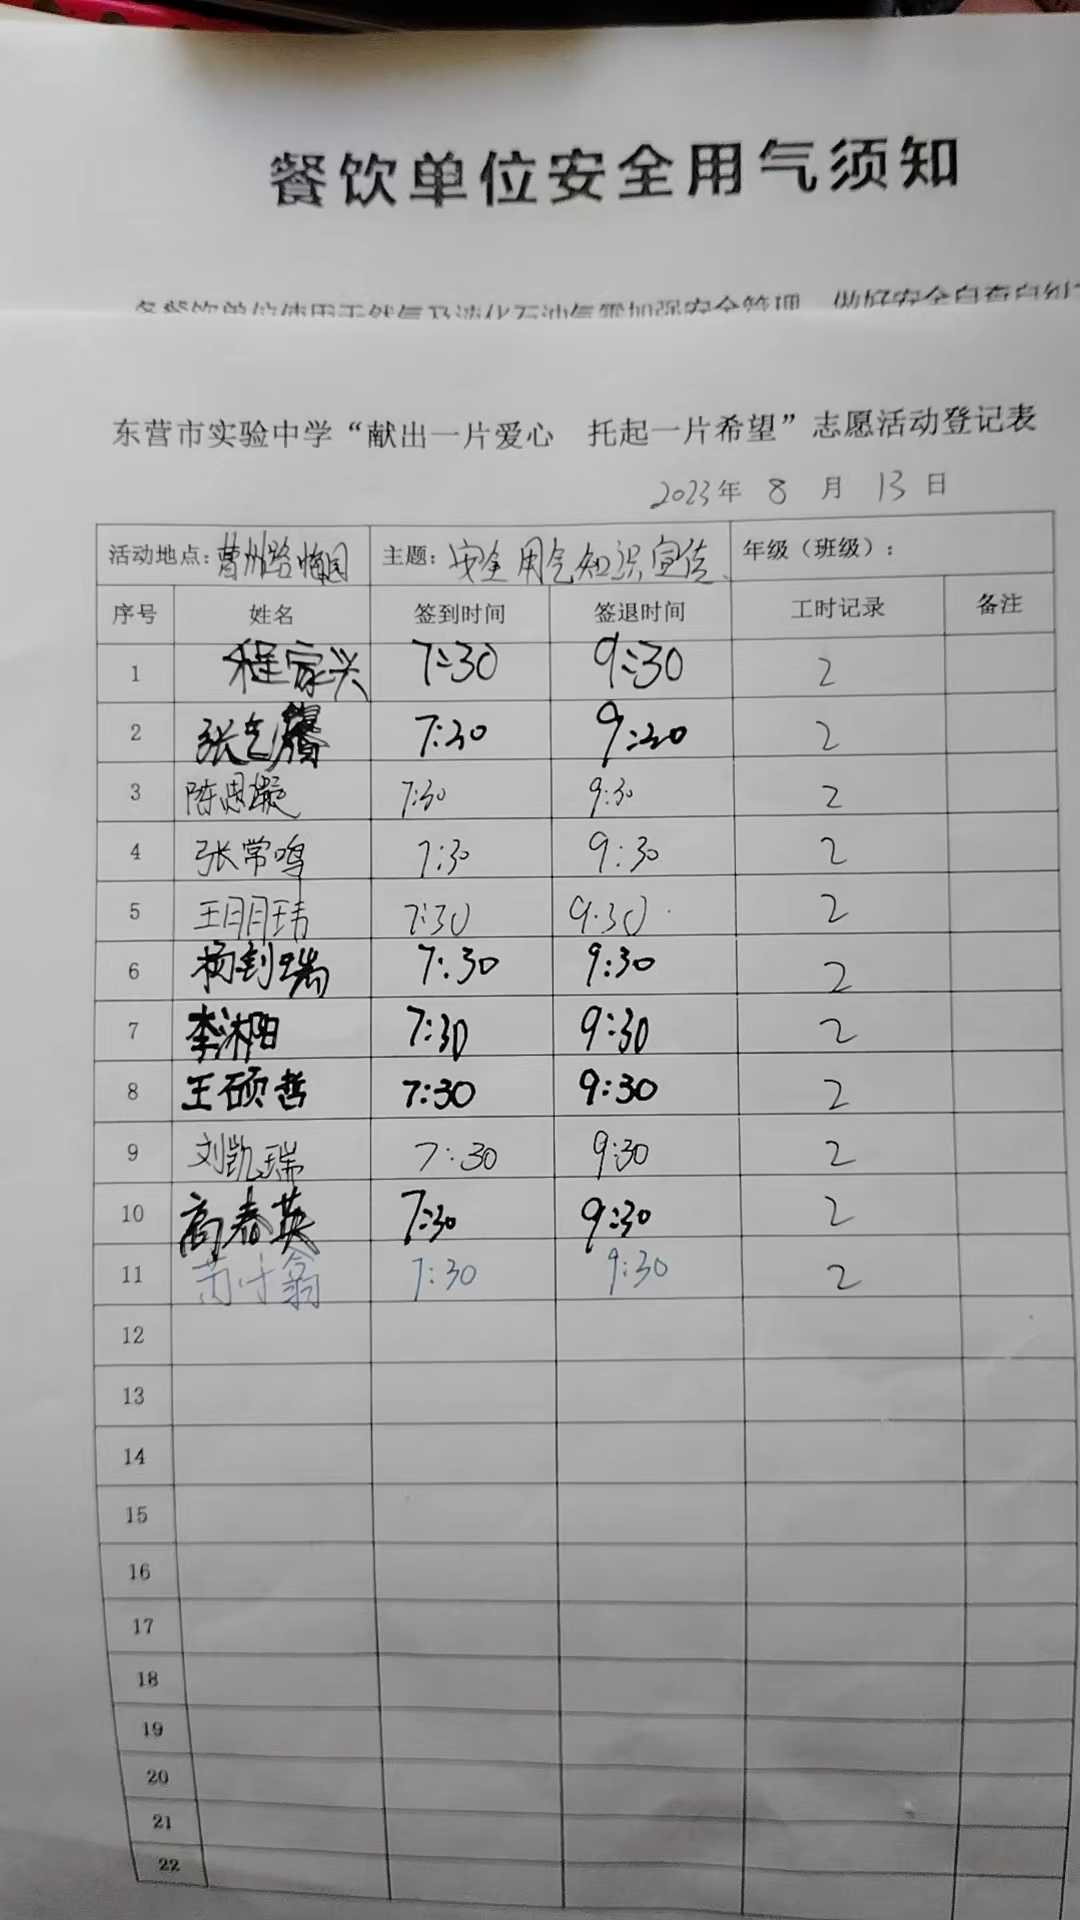 餐饮单位安全用气须知
各餐饮单位使用天然气及液化石油气需加强安全管理，做好安全自查自纠
东营市实验中学“献出一片爱心　托起一片希望”志愿活动登记表
2023年 8 月 13 日
活动地点: 曹州路 主题: 安全用气知识宣传 年级（班级）:
序号 姓名 签到时间 签退时间 工时记录 备注
1 程家兴 7:30 9:30 2
2 张 7:30 9:30 2
3 陈思凝 7:30 9:30 2
4 张常鸣 7:30 9:30 2
5 王月玮 7:30 9:30 2
6 杨钊瑞 7:30 9:30 2
7 李湘阳 7:30 9:30 2
8 王硕哲 7:30 9:30 2
9 刘凯瑞 7:30 9:30 2
10 高春英 7:30 9:30 2
11 7:30 9:30 2
12
13
14
15
16
17
18
19
20
21
22